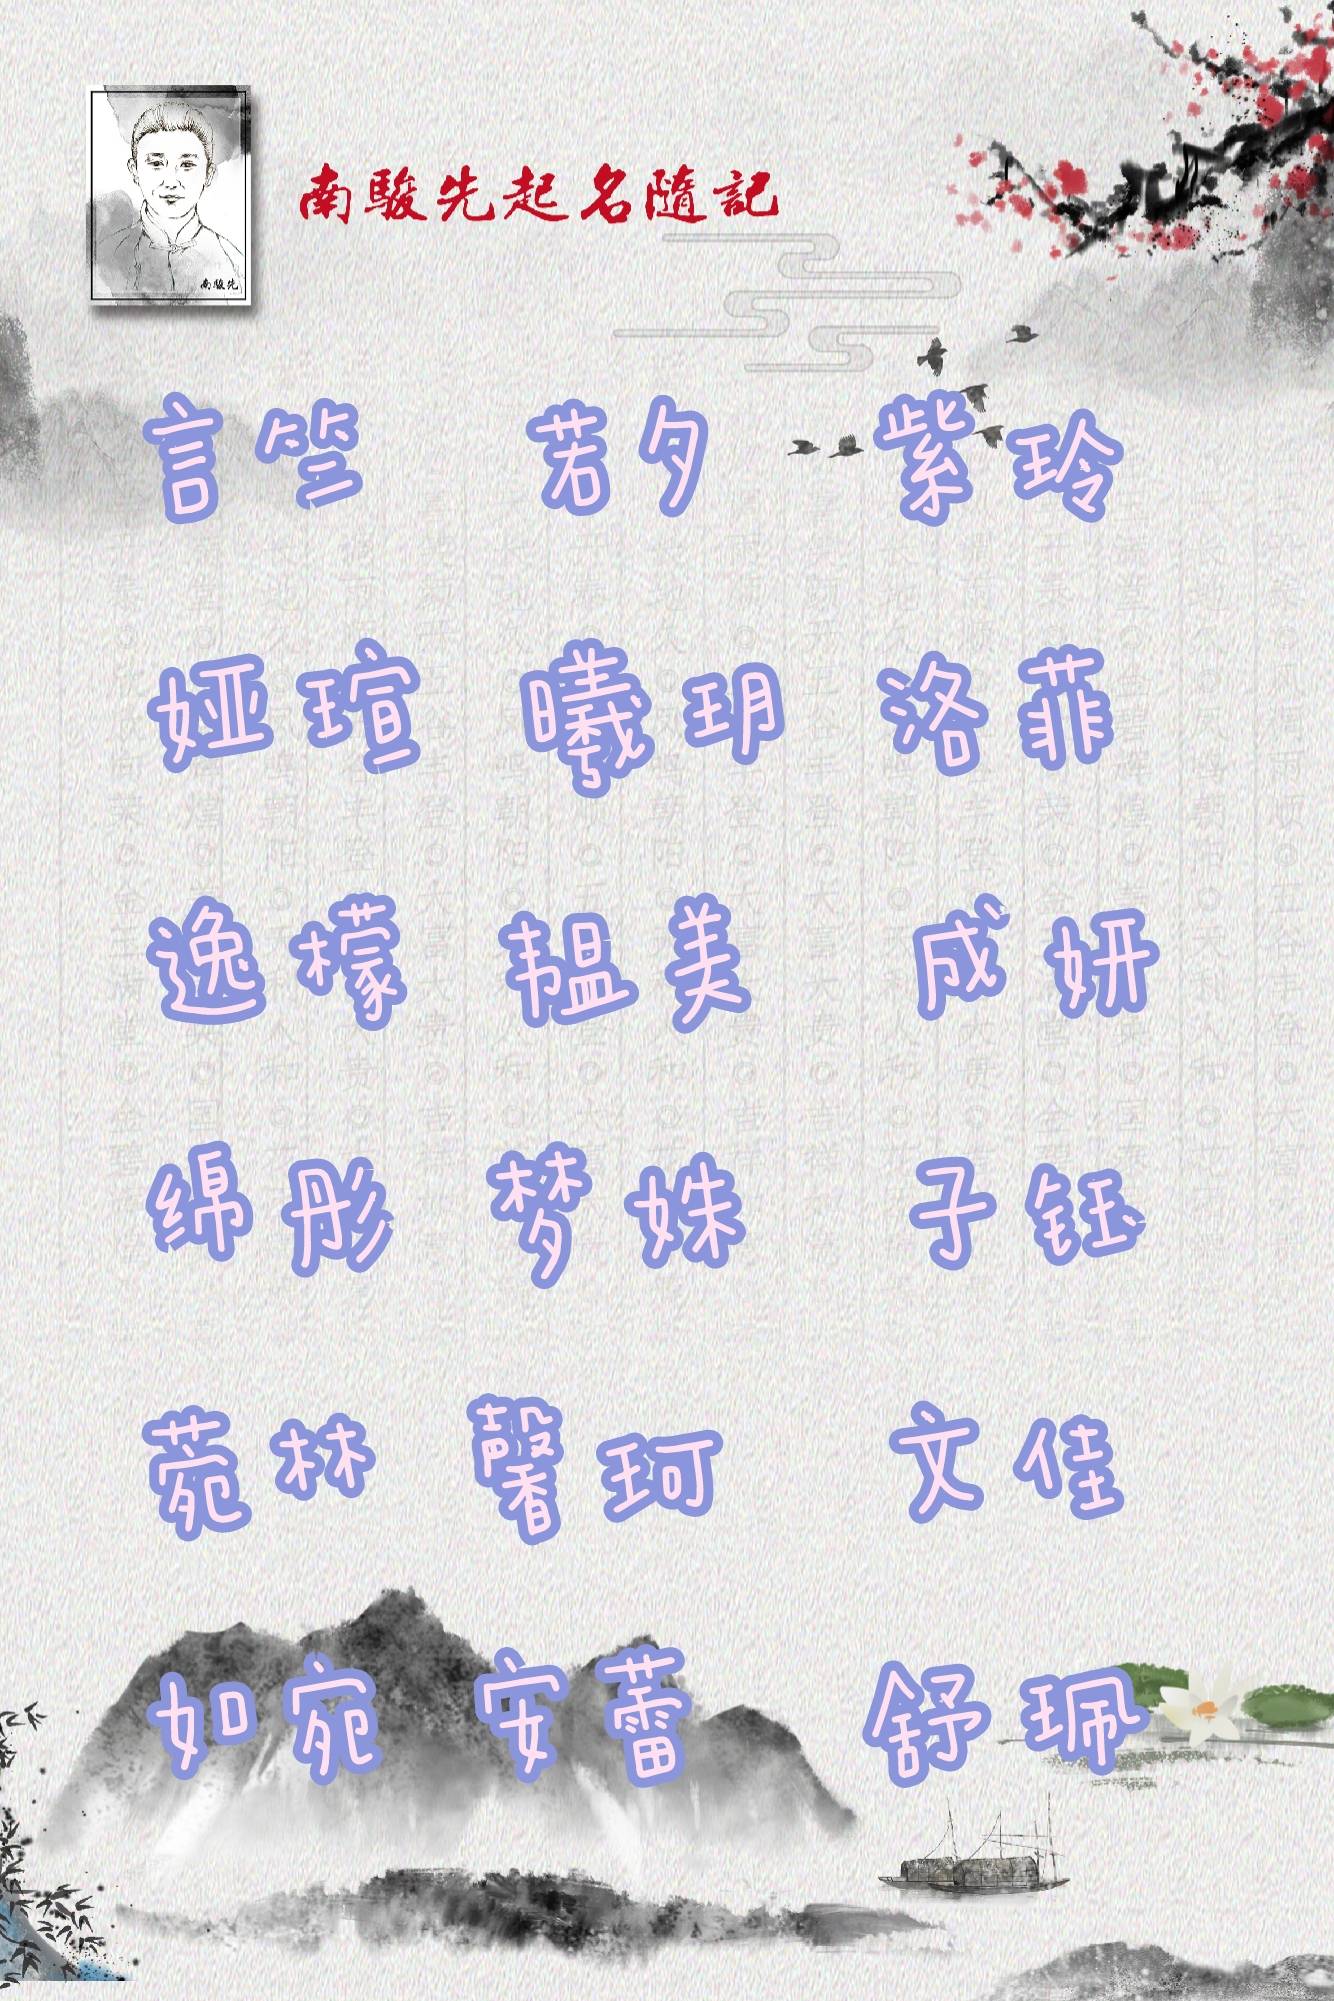 南駿先起名隨記
南駿先
言竺 若夕 紫玲
娅瑄 曦玥 洛菲
逸檬 韫美 成妍
绵彤 梦姝 子钰
菀林 馨珂 文佳
如宛 安蕾 舒珮